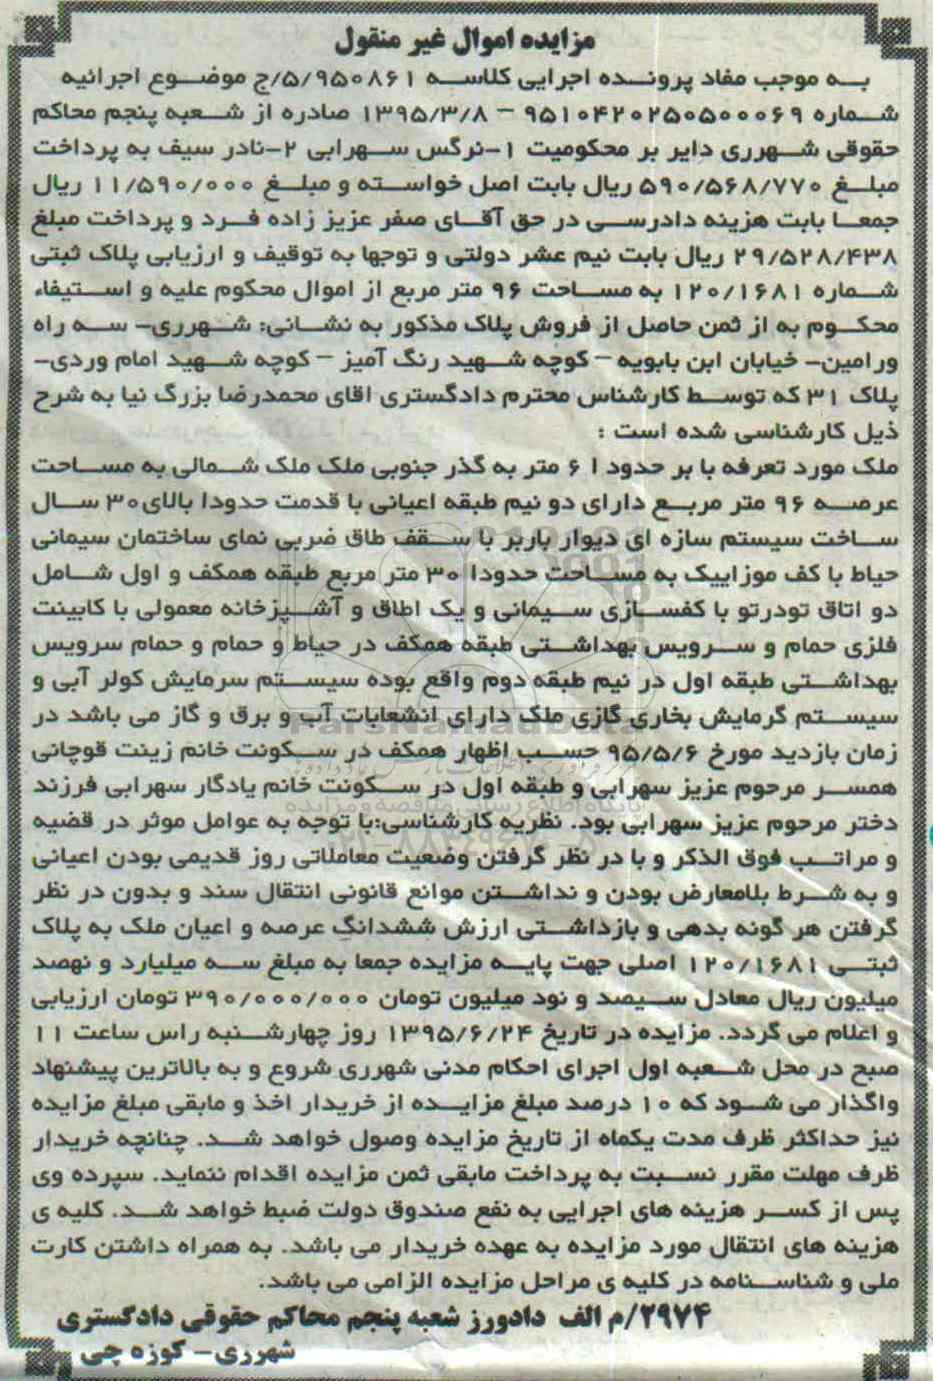 مزایده اموال غیر منقول
به موجب مفاد پرونده اجرایی کلاسه ۵/۹۵۰۸۶۱/ج موضوع اجرائیه
شماره ۹۵۱۰۴۲۰۲۵۰۵۰۰۰۶۹ – ۱۳۹۵/۳/۸ صادره از شعبه پنجم محاکم
حقوقی شهرری دایر بر محکومیت ۱-نرگس سهرابی ۲-نادر سیف به پرداخت
مبلغ ۵۹۰/۵۶۸/۷۷۰ ریال بابت اصل خواسته و مبلغ ۱۱/۵۹۰/۰۰۰ ریال
جمعا بابت هزینه دادرسی در حق آقای صفر عزیز زاده فرد و پرداخت مبلغ
۲۹/۵۲۸/۴۳۸ ریال بابت نیم عشر دولتی و توجها به توقیف و ارزیابی پلاک ثبتی
شماره ۱۲۰/۱۶۸۱ به مساحت ۹۶ متر مربع از اموال محکوم علیه و استیفاء
محکوم به از ثمن حاصل از فروش پلاک مذکور به نشانی: شهرری- سه راه
ورامین- خیابان ابن بابویه – کوچه شهید رنگ آمیز – کوچه شهید امام وردی-
پلاک ۳۱ که توسط کارشناس محترم دادگستری اقای محمدرضا بزرگ نیا به شرح
ذیل کارشناسی شده است :
ملک مورد تعرفه با بر حدود ا ۶ متر به گذر جنوبی ملک ملک شمالی به مساحت
عرصه ۹۶ متر مربع دارای دو نیم طبقه اعیانی با قدمت حدودا بالای۳۰ سال
ساخت سیستم سازه ای دیوار باربر با سقف طاق ضربی نمای ساختمان سیمانی
حیاط با کف موزاییک به مساحت حدودا ۳۰ متر مربع طبقه همکف و اول شامل
دو اتاق تودرتو با کفسازی سیمانی و یک اطاق و آشپزخانه معمولی با کابینت
فلزی حمام و سرویس بهداشتی طبقه همکف در حیاط و حمام و حمام سرویس
بهداشتی طبقه اول در نیم طبقه دوم واقع بوده سیستم سرمایش کولر آبی و
سیستم گرمایش بخاری گازی ملک دارای انشعابات آب و برق و گاز می باشد در
زمان بازدید مورخ ۹۵/۵/۶ حسب اظهار همکف در سکونت خانم زینت قوچانی
همسر مرحوم عزیز سهرابی و طبقه اول در سکونت خانم یادگار سهرابی فرزند
دختر مرحوم عزیز سهرابی بود. نظریه کارشناسی:با توجه به عوامل موثر در قضیه
و مراتب فوق الذکر و با در نظر گرفتن وضعیت معاملاتی روز قدیمی بودن اعیانی
و به شرط بلامعارض بودن و نداشتن موانع قانونی انتقال سند و بدون در نظر
گرفتن هر گونه بدهی و بازداشتی ارزش ششدانگ عرصه و اعیان ملک به پلاک
ثبتی ۱۲۰/۱۶۸۱ اصلی جهت پایه مزایده جمعا به مبلغ سه میلیارد و نهصد
میلیون ریال معادل سیصد و نود میلیون تومان ۳۹۰/۰۰۰/۰۰۰ تومان ارزیابی
و اعلام می گردد. مزایده در تاریخ ۱۳۹۵/۶/۲۴ روز چهارشنبه راس ساعت ۱۱
صبح در محل شعبه اول اجرای احکام مدنی شهرری شروع و به بالاترین پیشنهاد
واگذار می شود که ۱۰ درصد مبلغ مزایده از خریدار اخذ و مابقی مبلغ مزایده
نیز حداکثر ظرف مدت یکماه از تاریخ مزایده وصول خواهد شد. چنانچه خریدار
ظرف مهلت مقرر نسبت به پرداخت مابقی ثمن مزایده اقدام ننماید. سپرده وی
پس از کسر هزینه های اجرایی به نفع صندوق دولت ضبط خواهد شد. کلیه ی
هزینه های انتقال مورد مزایده به عهده خریدار می باشد. به همراه داشتن کارت
ملی و شناسنامه در کلیه ی مراحل مزایده الزامی می باشد.
۲۹۷۴/م الف دادورز شعبه پنجم محاکم حقوقی دادگستری
شهرری- کوزه چی